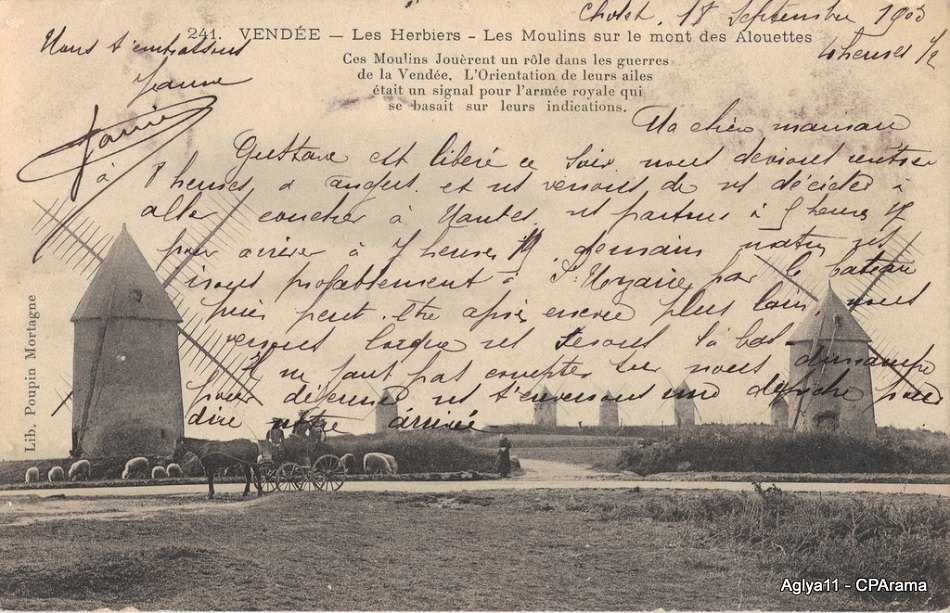 Cholet. 18 Septembre 1903
4 heures 1/2
241. VENDÉE — Les Herbiers - Les Moulins sur le mont des Alouettes
Ces Moulins Jouèrent un rôle dans les guerres
de la Vendée. L'Orientation de leurs ailes
était un signal pour l'armée royale qui
se basait sur leurs indications.
Ma chère maman
Gustave est libéré ce soir nous devions rentrer
à 8 heures à angers et ns venons de ns décider à
aller coucher à Nantes, ns partons à 5 heures
pour arriver à 7 heures demain matin ns
irons probablement à St Nazaire par le bateau
puis peut-être après encore plus loin, nous
verrons lorsque ns serons là bas
Il ne faut pas compter sur nous demain
pour déjeuner ns t'enverrons une dépêche pour
dire notre arrivée
Nous t'embrassons
Jeanne
Lib. Poupin Mortagne
Aglya11 - CPArama